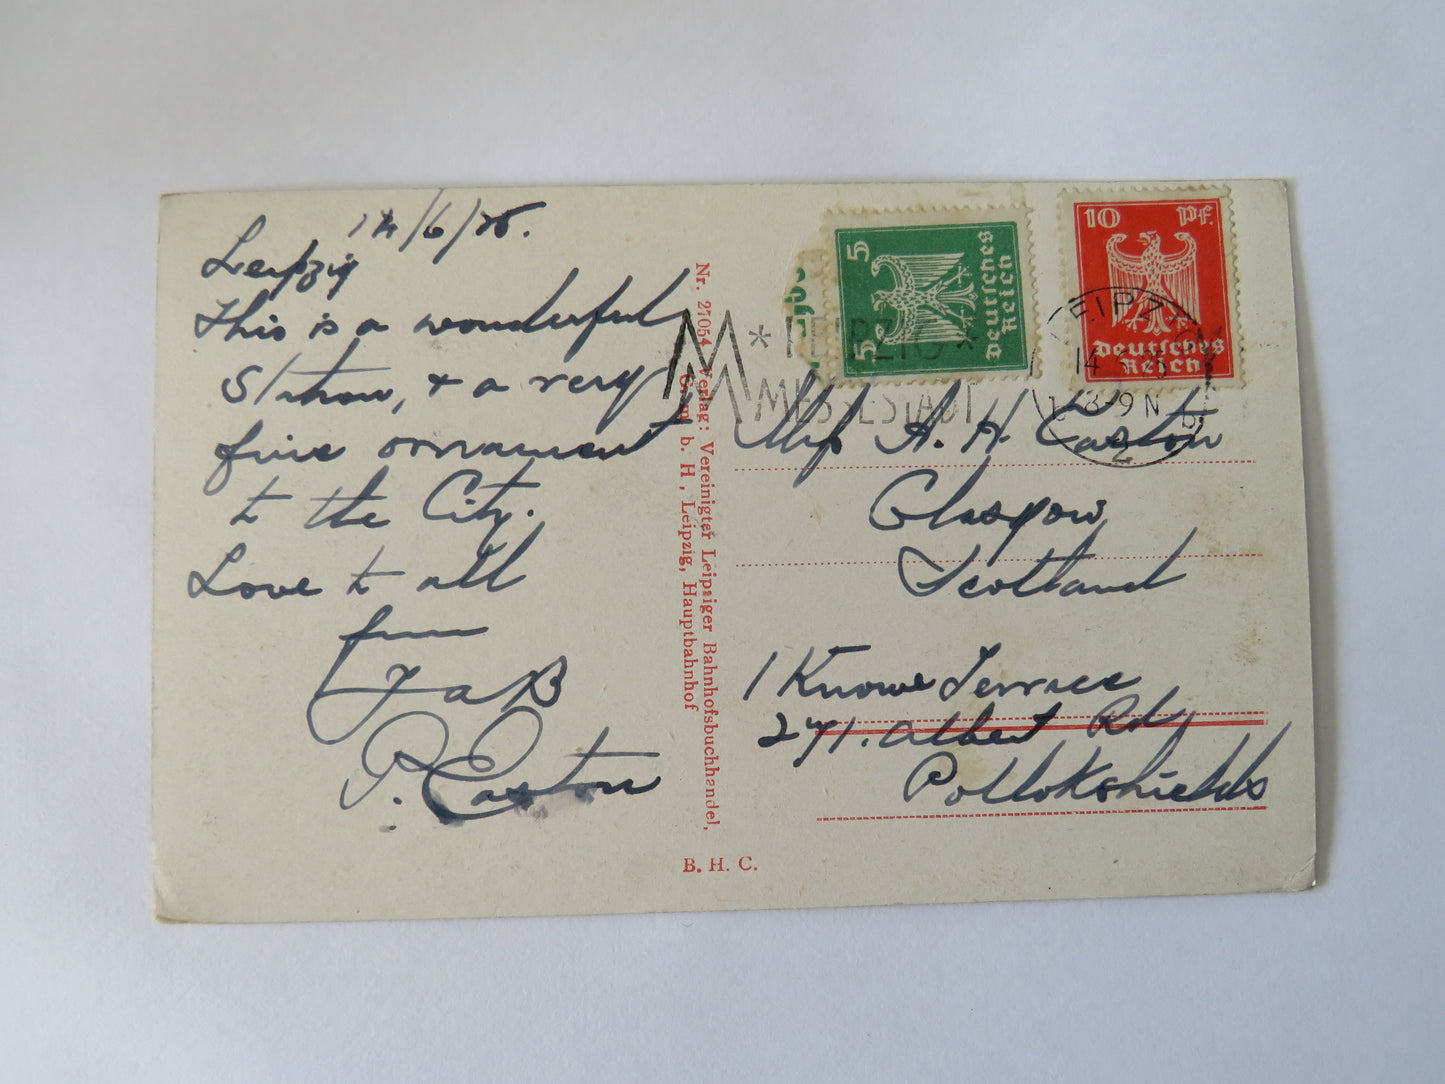 14/6/26.
Leipzig
This is a wonderful
Station, & a very
fine ornament
to the City.
Love to all
from
J a B
P. Easton
Nr. 27054 Verlag: Vereinigter Leipziger Bahnhofsbuchhandel,
G. m. b. H., Leipzig, Hauptbahnhof
B. H. C.
5 5
Deutsches
Reich
10 Pf.
Deutsches
Reich
* LEIPZIG *
MESSESTADT
LEIPZIG
14
8-9 N
2
A. H. Easton
Glasgow
Scotland
1 Knowe Terrace
271. Albert Rd
Pollokshields